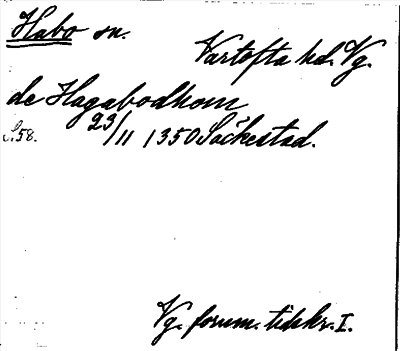 Habo sn.
Vartofta hd. Vg.
de Hagabodhom
S. 58. 23/11 1350 Säckestad.
Vg. fornm. tidskr. I.